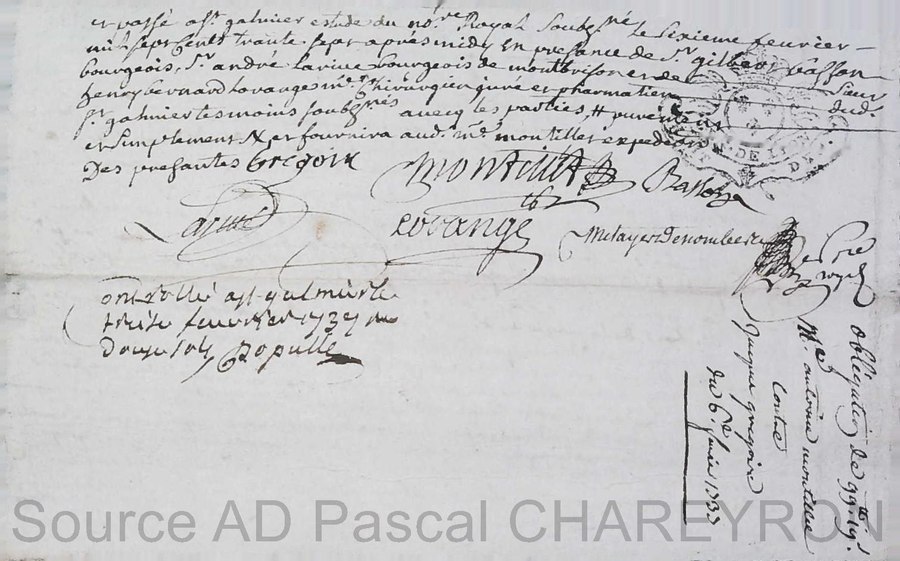 et passé a st galmier estude du nore Royal soubsné le sixieme feurier
mil sept cents trante sept apres midy En presence de sr gilbert basson
bourgeois, sr andré Larive bourgeois de montbrison et de sieur
henry bernard Lorange me chirurgien juré et pharmatien dud.
st galmier tesmoins soubsnés aueeq les parties, purement
et simplement et fournira aud. me montillet expedeon
Des presantes Gregoire
montillet Basson
Larive
Lorange
Metayer Denombera
ontrollé a st galmier le
treise feurrier 1737
Douze sols Populle
Obligation de 99 lt
Me antoine montillet
contre
Jacque gregoire
du 6e
Source AD Pascal CHAREYRON